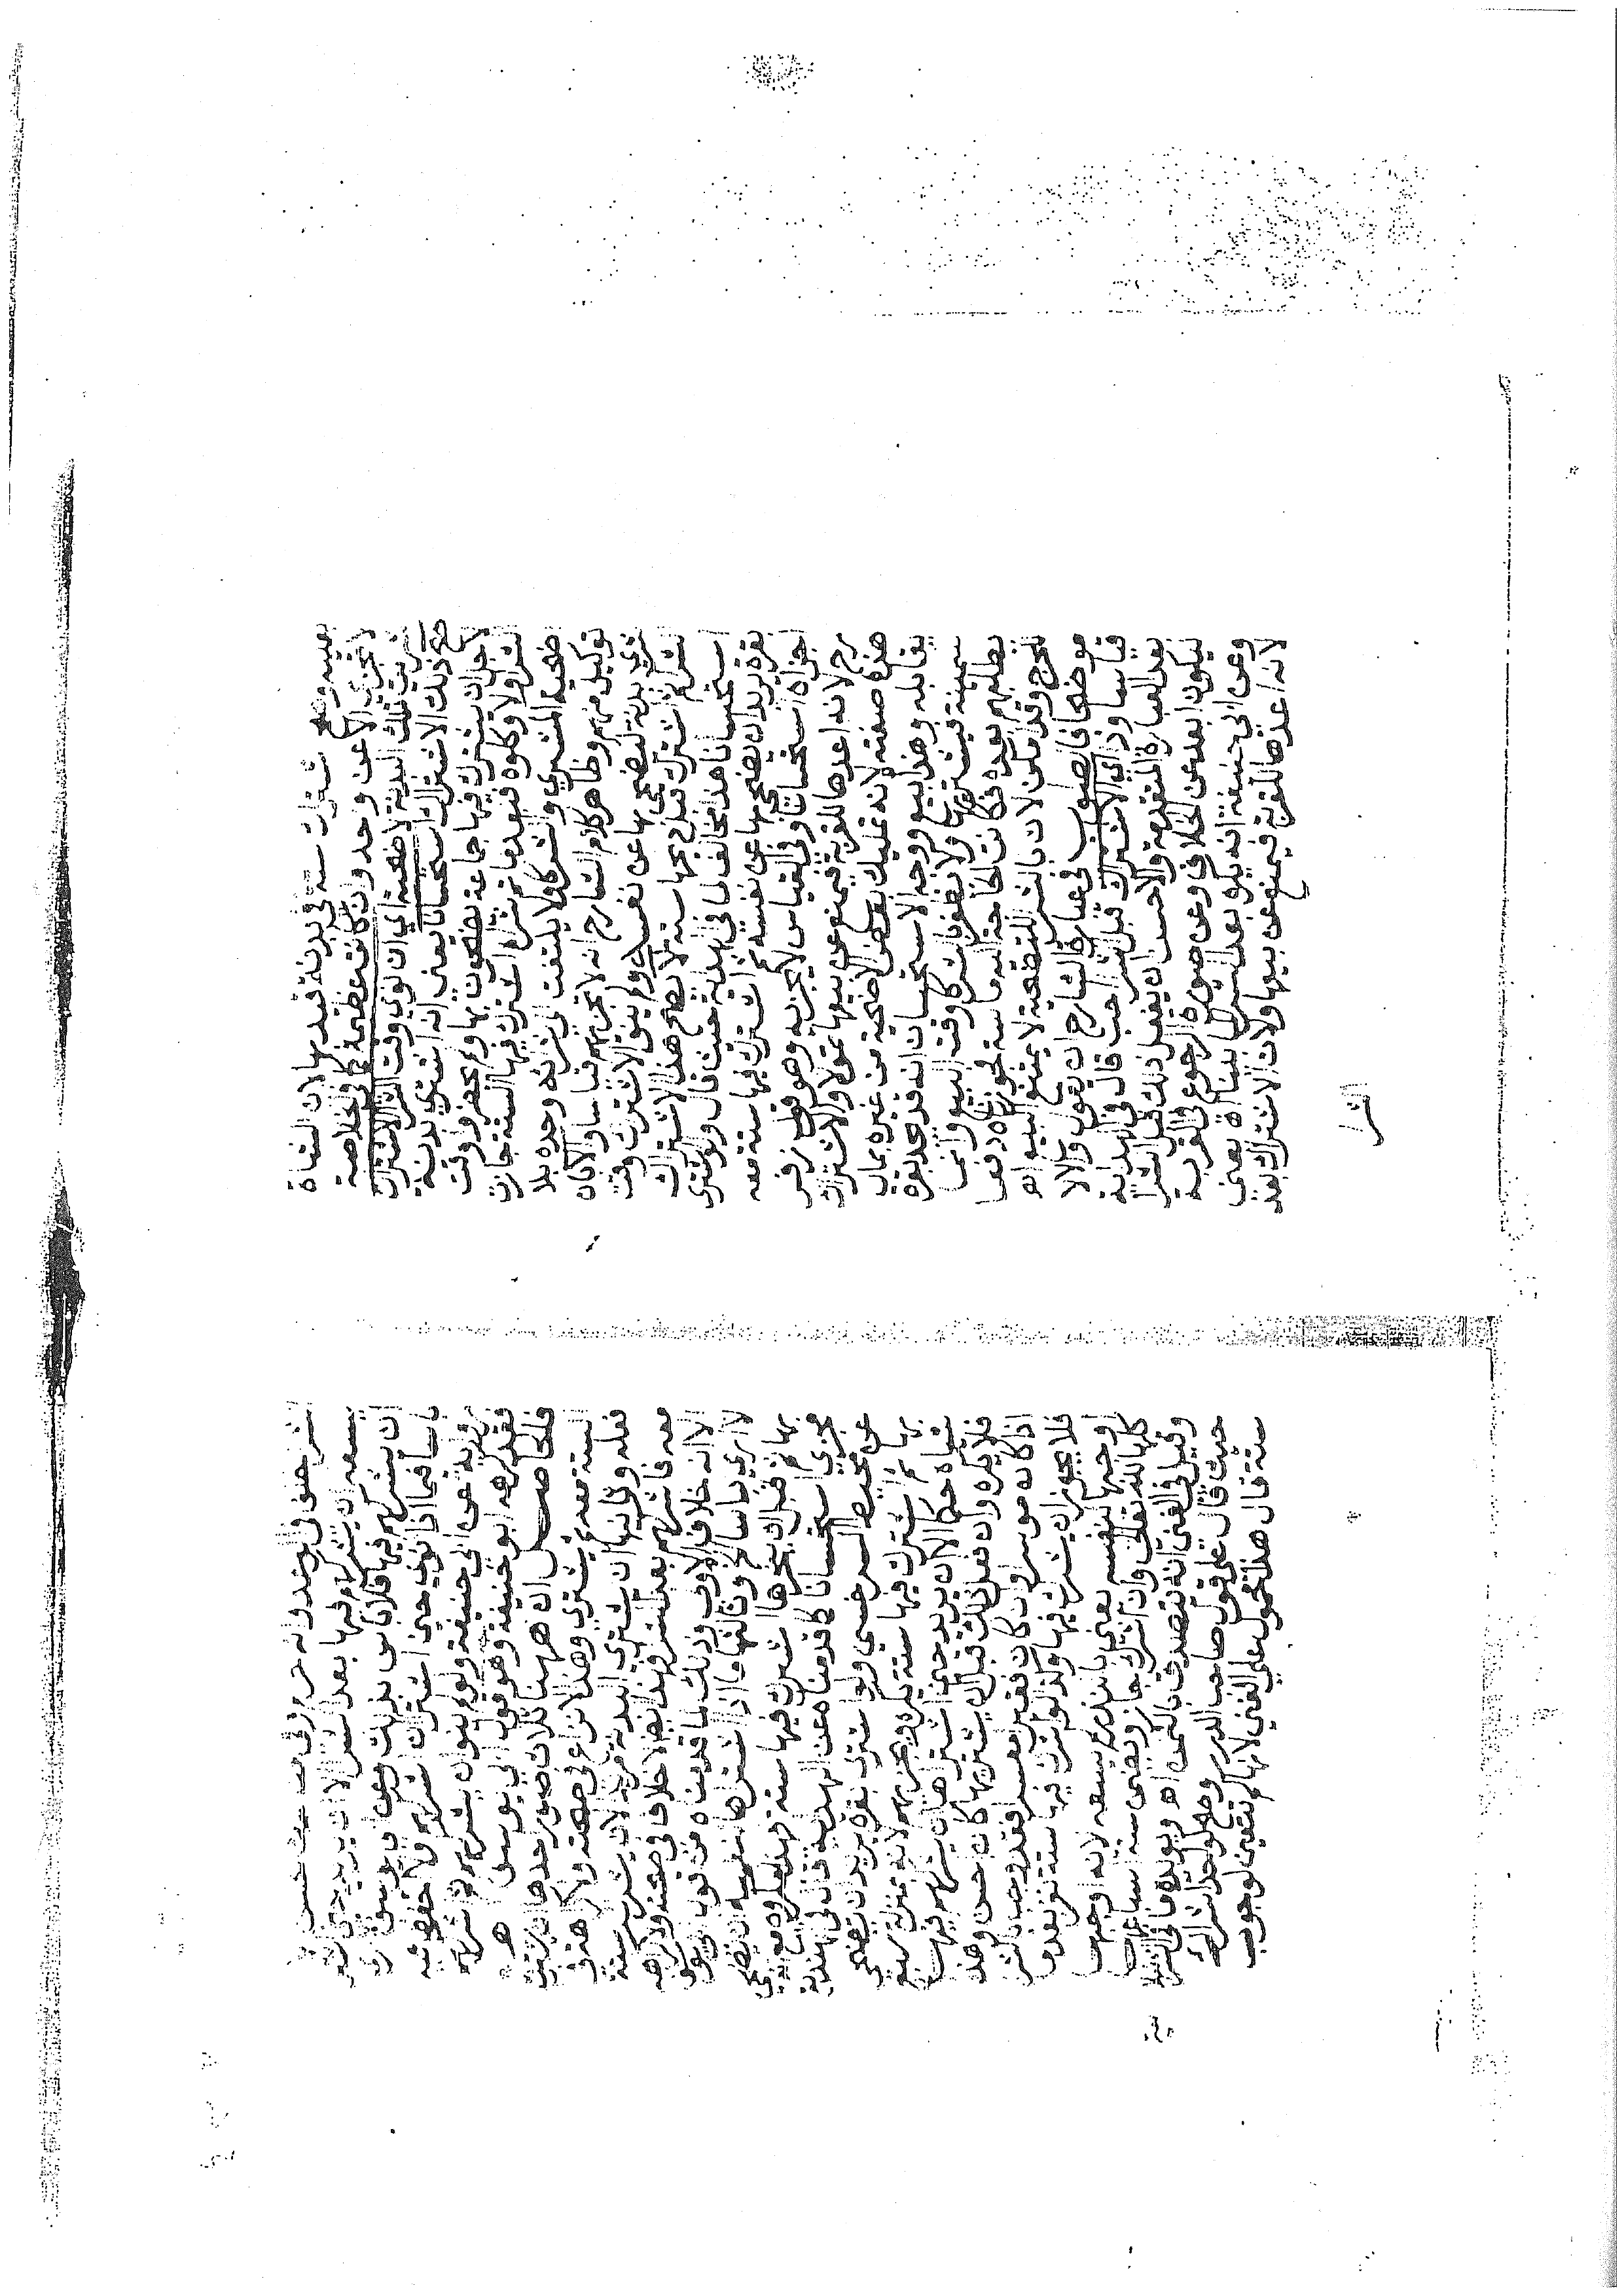 بعينه وصح اشتراك ستة في بدنة قيد بها لان الشاة
لا تجزي الا عن واحد وان كانت عظيمة كما في الخلاصة
شريت تلك البدنة لاضحية اي ان نوى وقت الشرا الاشتراك
صح ذلك الاشتراك استحسانا يعني انه اشترى بدنة
على ان يشترك فيها جماعة يضحون بها ولم يحضروا وقت
الشرا ولا وكلوه فبعد ما تم شراه اشترك فيها الستة جازت
ضحية المشتري والشركا ولا يلتفت الى شرائه وحده بلا
توكيل منهم وظاهر كلام الشارح انه لا تجزيهم قياسا والا بان
شرى بدنة ليضحي بها عن نفسه ولم ينو الاشتراك وقت
شرائه ثم اشترك قبل ذبحها ستة لا يصح هذا الاشتراك
استحسانا هذا مخالف لما في الهداية حيث قال ولو اشترى
بقرة يريد ان يضحي بها عن نفسه ثم اشترك فيها ستة معه
جزاه استحسانا وفي القياس لا يجزيه وهو قول زفر
رح لانه اعدها للقربة فيمنع عن بيعها تمولا والاشتراك
هذه صفته لانه تمليك بعض الاضحية من غيره بمال
يقابله وهذا بيع ووجه الاستحسان انه قد يجد بقرة
سمينة فيشتريها ولا يظفر بالشركا وقت البيع وانما
يطلبهم بعده فكانت الحاجة اليه ماسة فجوزناه دفعا
للحرج وقد امكن لان بالشرا للتضحية لا يمتنع البيع اه
موضحا فالصواب في عبارة الشارح ان يقول والا لا
قياسا وذا اي الاشتراك قبل الشرا احب قال في الهداية
بعد العبارة المتقدمة والاحسن ان يفعل ذلك قبل الشرا
ليكون ابعد عن الخلاف وعن صورة الرجوع في القربة
وعن ابي حنيفة انه يكره بعد الشرا لما بينا اه يعني
لانه اعدها للقربة فيمنع عن بيعها ولان الاشتراك بعد
الشرا
الشرا خلف في الوعد وانه حرام
يسعه ان يشركهم فيها بعد الشرا الا ان يريد حين اشترى
ان يشركهم فيها فلا باس بذلك وعن ابي يوسف
باسا فيما اذا نوى حين اشترى ان يشركهم ولا احفظ فيه
رواية عن ابي حنيفة ولو لم ينو ان يشركهم ثم اشركهم
فقد كرهه ابو حنيفة وهو قول ابي يوسف اه
فالحاصل ان ههنا ثلاث صور احدها ان يشترك
الستة معه ثم يشتري وهذا لا نزاع في صحته ولا كراهة في
فعله وثانيها ان يشتري البدنة مريدا لان يشترك ستة
معه فاشركهم بعد الشرا وهذا ايضا لا خلاف في صحته ولا كراهة
الا انه خلاف الاولى وذلك لما قدمناه من قول ابي يوسف
لا ارى باسا الخ وثالثها ما اذا اشتراها لنفسه ان يضحي
بها ثم قبل ان ينحرها اشرك فيها ستة فهذا مكروه مع انه
يجزي استحسانا كما قدمناه عن الهداية قال في الهندية
عن محيط السرخسي ولو اشترى بقرة يريد ان يضحي
بها ثم اشترك فيها ستة يكره ويجزيهم لانه بمنزلة سبع
شياه حكما الا ان يريد حين اشتراها ان يشركهم فيها
فلا يكره وان فعل ذلك قبل ان يشتريها كان احسن وهذا
اذا كان موسرا وان كان فقيرا معسرا فقد اوجب بالشرا
فلا يجوز ان يشرك فيها وكذا لو اشرك فيها ستة بعد ما
اوجبها لنفسه يعني بالنذر لم يسعه لانه اوجبها
كلها لله تعالى وان اشرك جاز ويضمن ستة اسباعها
وقيل في الغني انه يتصدق بالثمن اه ويؤيده ما في
حيث قال على قول صاحب الدرر وصح لواحد اشراك
ستة قال هذا محمول على الغني لانها لم تتعين لوجوب